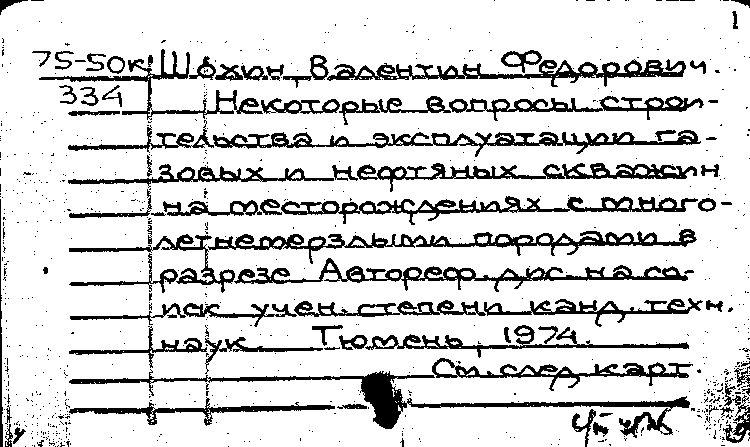 1
75-50к Шохин, Валентин Федорович.
334 Некоторые вопросы строи-
тельства и эксплуатации га-
зовых и нефтяных скважин
на месторождениях с много-
летнемерзлыми породами в
разрезе. Автореф. дис. на со-
иск. учен. степени канд. техн.
наук. Тюмень, 1974.
См. след. карт.